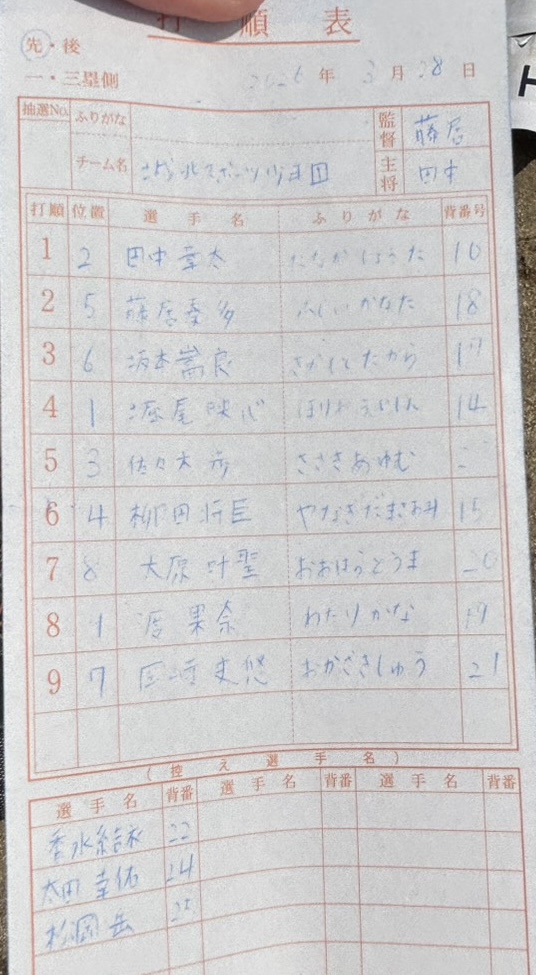 打順表
先・後
一・三塁側
2026年3月28日
抽選No. ふりがな 監督 藤居
チーム名 城北スポーツ少年団 主将 田中
打順 位置 選手名 ふりがな 背番号
1 2 田中幸太 たなかこうた 10
2 5 藤居奏多 ふじいかなた 18
3 6 坂本嵩良 さかもとたから 17
4 1 堀尾 心 ほりお 14
5 3 佐々木歩 ささきあゆむ
6 4 柳田将臣 やなぎだまさおみ 15
7 8 大原叶聖 おおはらとうま 20
8 9 渡果奈 わたりかな 19
9 7 岡崎史悠 おかざきしゅう 21
(控え選手名)
選手名 背番 選手名 背番 選手名 背番
香水結衣 22
太田幸佑 24
杉岡岳 25